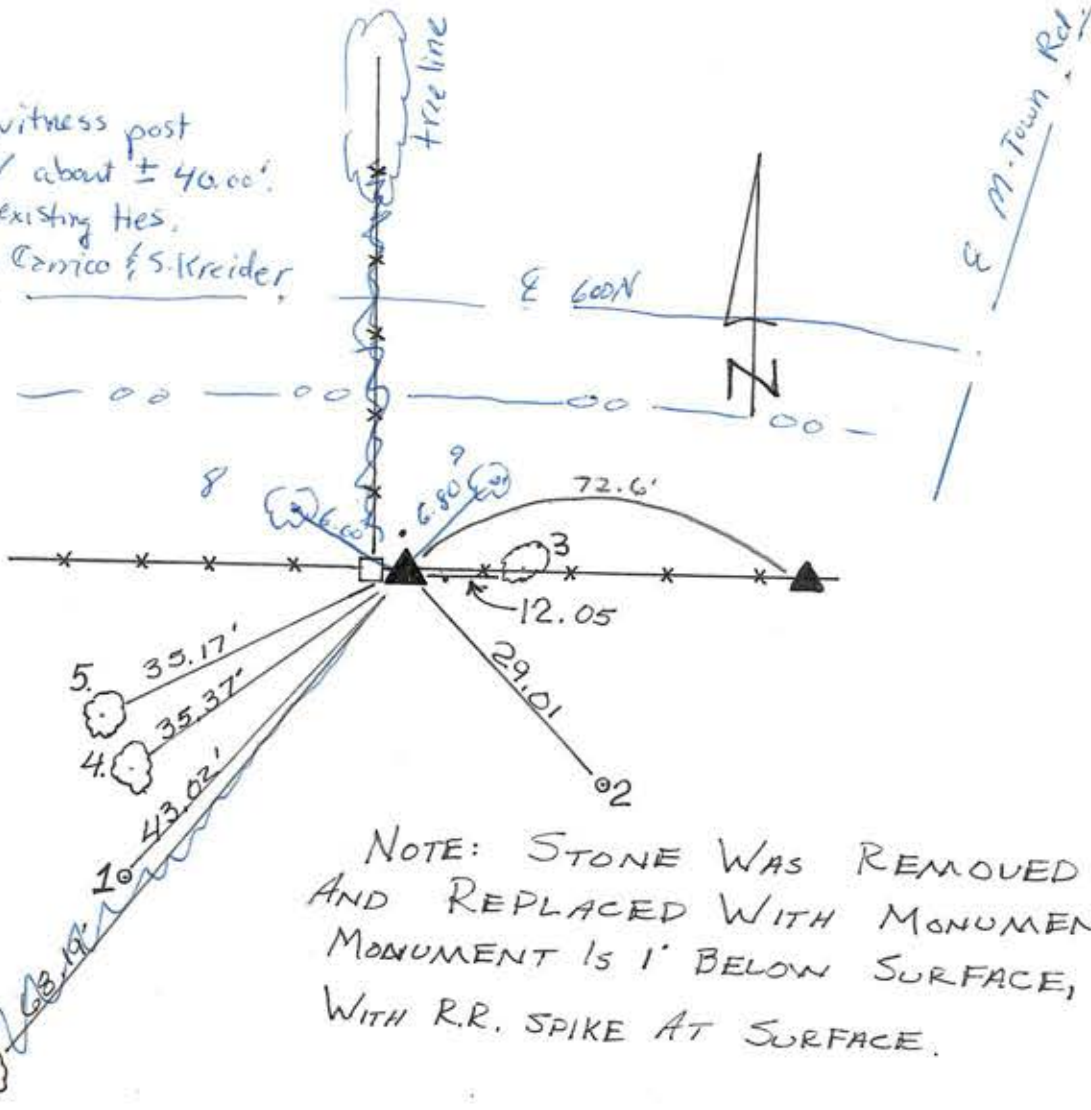 tree line
witness post
about ± 40.00'.
existing ties.
Carrico & S. Kreider
℄ M-Town Rd.
℄ 600N
N
8
9
6.60'
6.80'
72.6'
3
12.05
29.01
5.
35.17'
4.
35.37'
43.02'
2
1
68.19'
NOTE: STONE WAS REMOVED
AND REPLACED WITH MONUMEN
MONUMENT IS 1' BELOW SURFACE,
WITH R.R. SPIKE AT SURFACE.